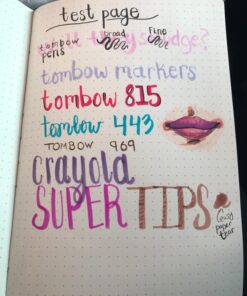 test page
will they smudge?
tombow pens
broad
Fine
tombow markers
tombow 815
tombow 443
TOMBOW 969
crayola
SUPER TIPS
easy paper tear